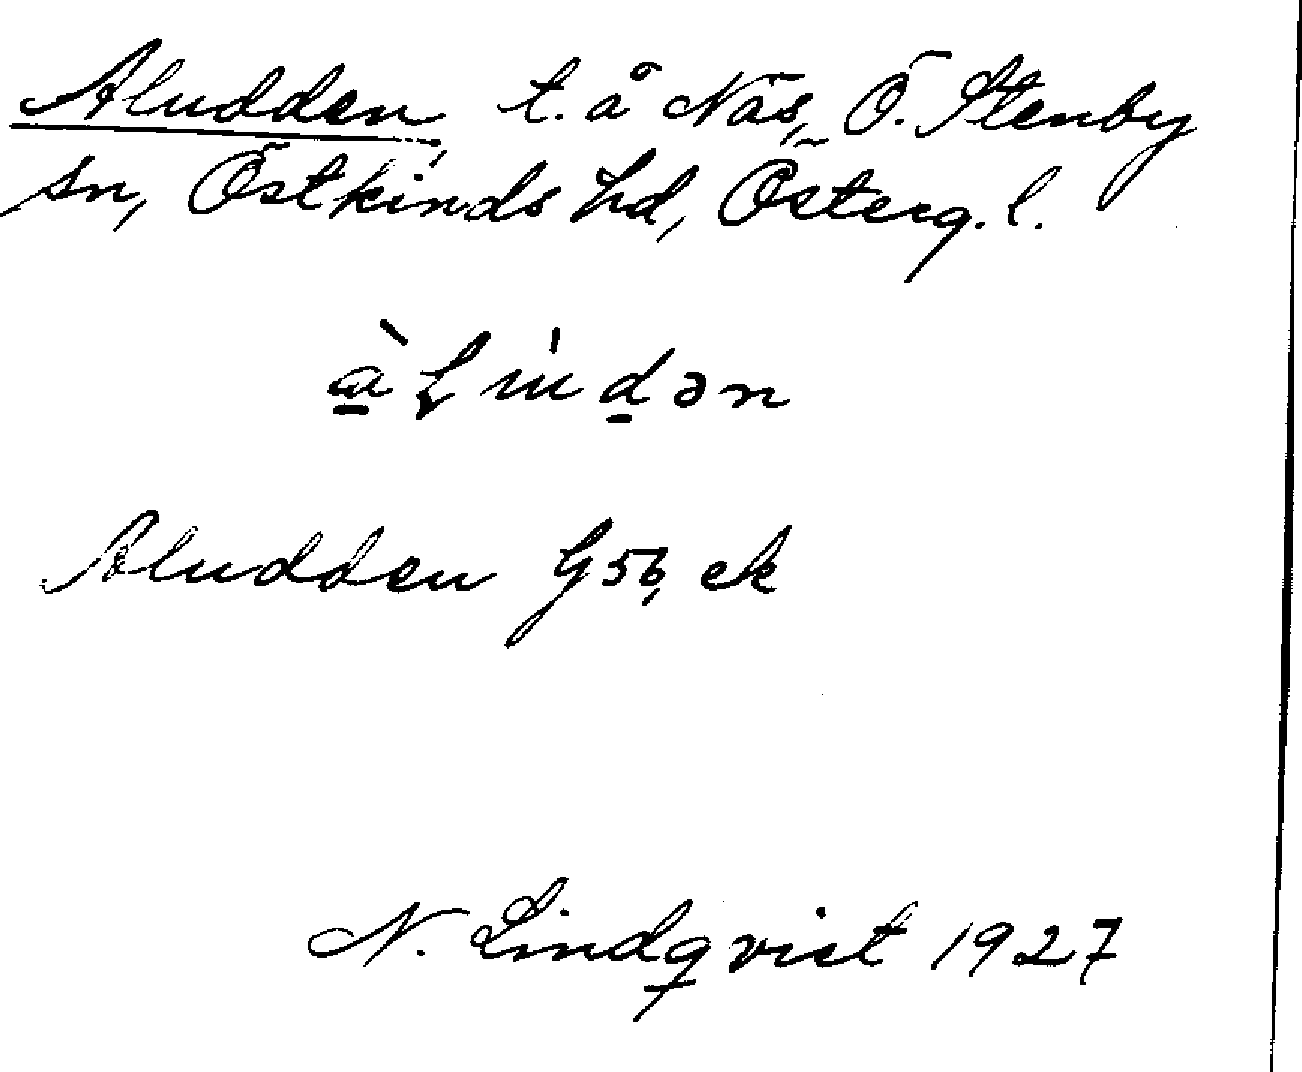 Aludden, t. å Näs, Ö. Stenby
sn, Östkinds hd, Österg. l.
Aludden G 56, ek
N. Lindqvist 1927